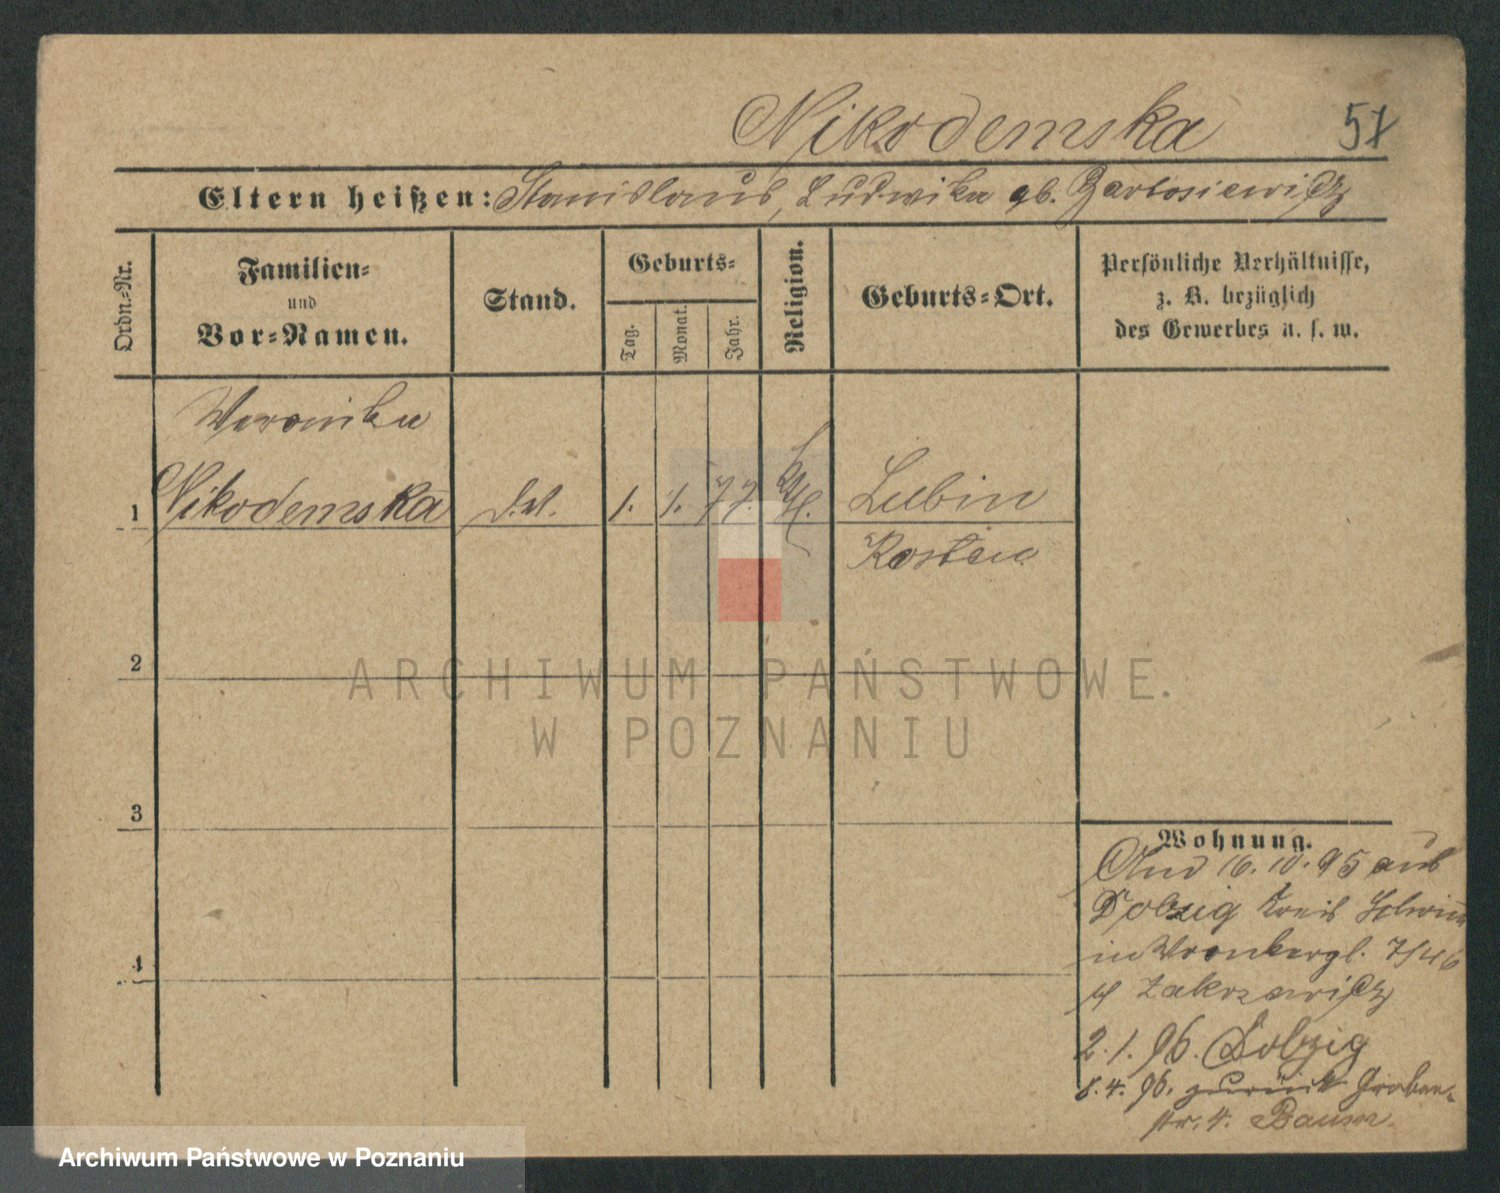 Nikodemska
57
Eltern heißen: Stanislaus, Ludwika gb. Bartosiewicz
Ordn.-Nr.
Familien-
und
Vor-Namen.
Stand.
Geburts-
Tag.
Monat.
Jahr.
Religion.
Geburts-Ort.
Persönliche Verhältnisse,
z. B. bezüglich
des Gewerbes u. s. w.
Veronika
1 Nikodemska 1. 1. 77. kath. Lubin
Kosten
2
3
4
Wohnung.
16.10.95 aus
Dolzig Kreis Schrimm
in Wronkerpl. 7/46
Zakrzewicz
2.1.96. Dolzig
8.4.96. zurück Graben-
str. 4. Bauer
ARCHIWUM PAŃSTWOWE
W POZNANIU
Archiwum Państwowe w Poznaniu